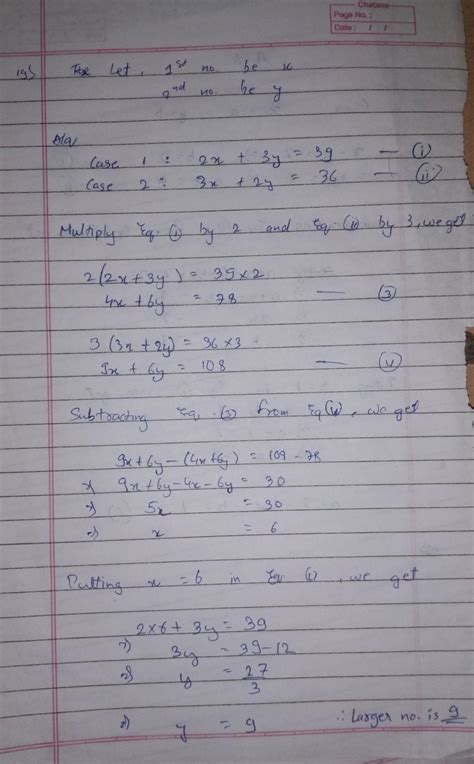 Chetana
Page No. :
Date : / /
19) Let, 1st no. be x
2nd no. be y
Case 1 : 2x + 3y = 39 — (i)
Case 2 : 3x + 2y = 36 — (ii)
Multiply Eq. (i) by 2 and Eq. (ii) by 3, we get
2(2x + 3y) = 39 × 2
4x + 6y = 78 — (3)
3(3x + 2y) = 36 × 3
9x + 6y = 108 —
Subtracting Eq. (3) from Eq , we get
9x + 6y - (4x + 6y) = 108 - 78
9x + 6y - 4x - 6y = 30
5x = 30
x = 6
Putting x = 6 in Eq (i), we get
2×6 + 3y = 39
3y = 39 - 12
y = 27/3
y = 9
∴ Larger no. is 9